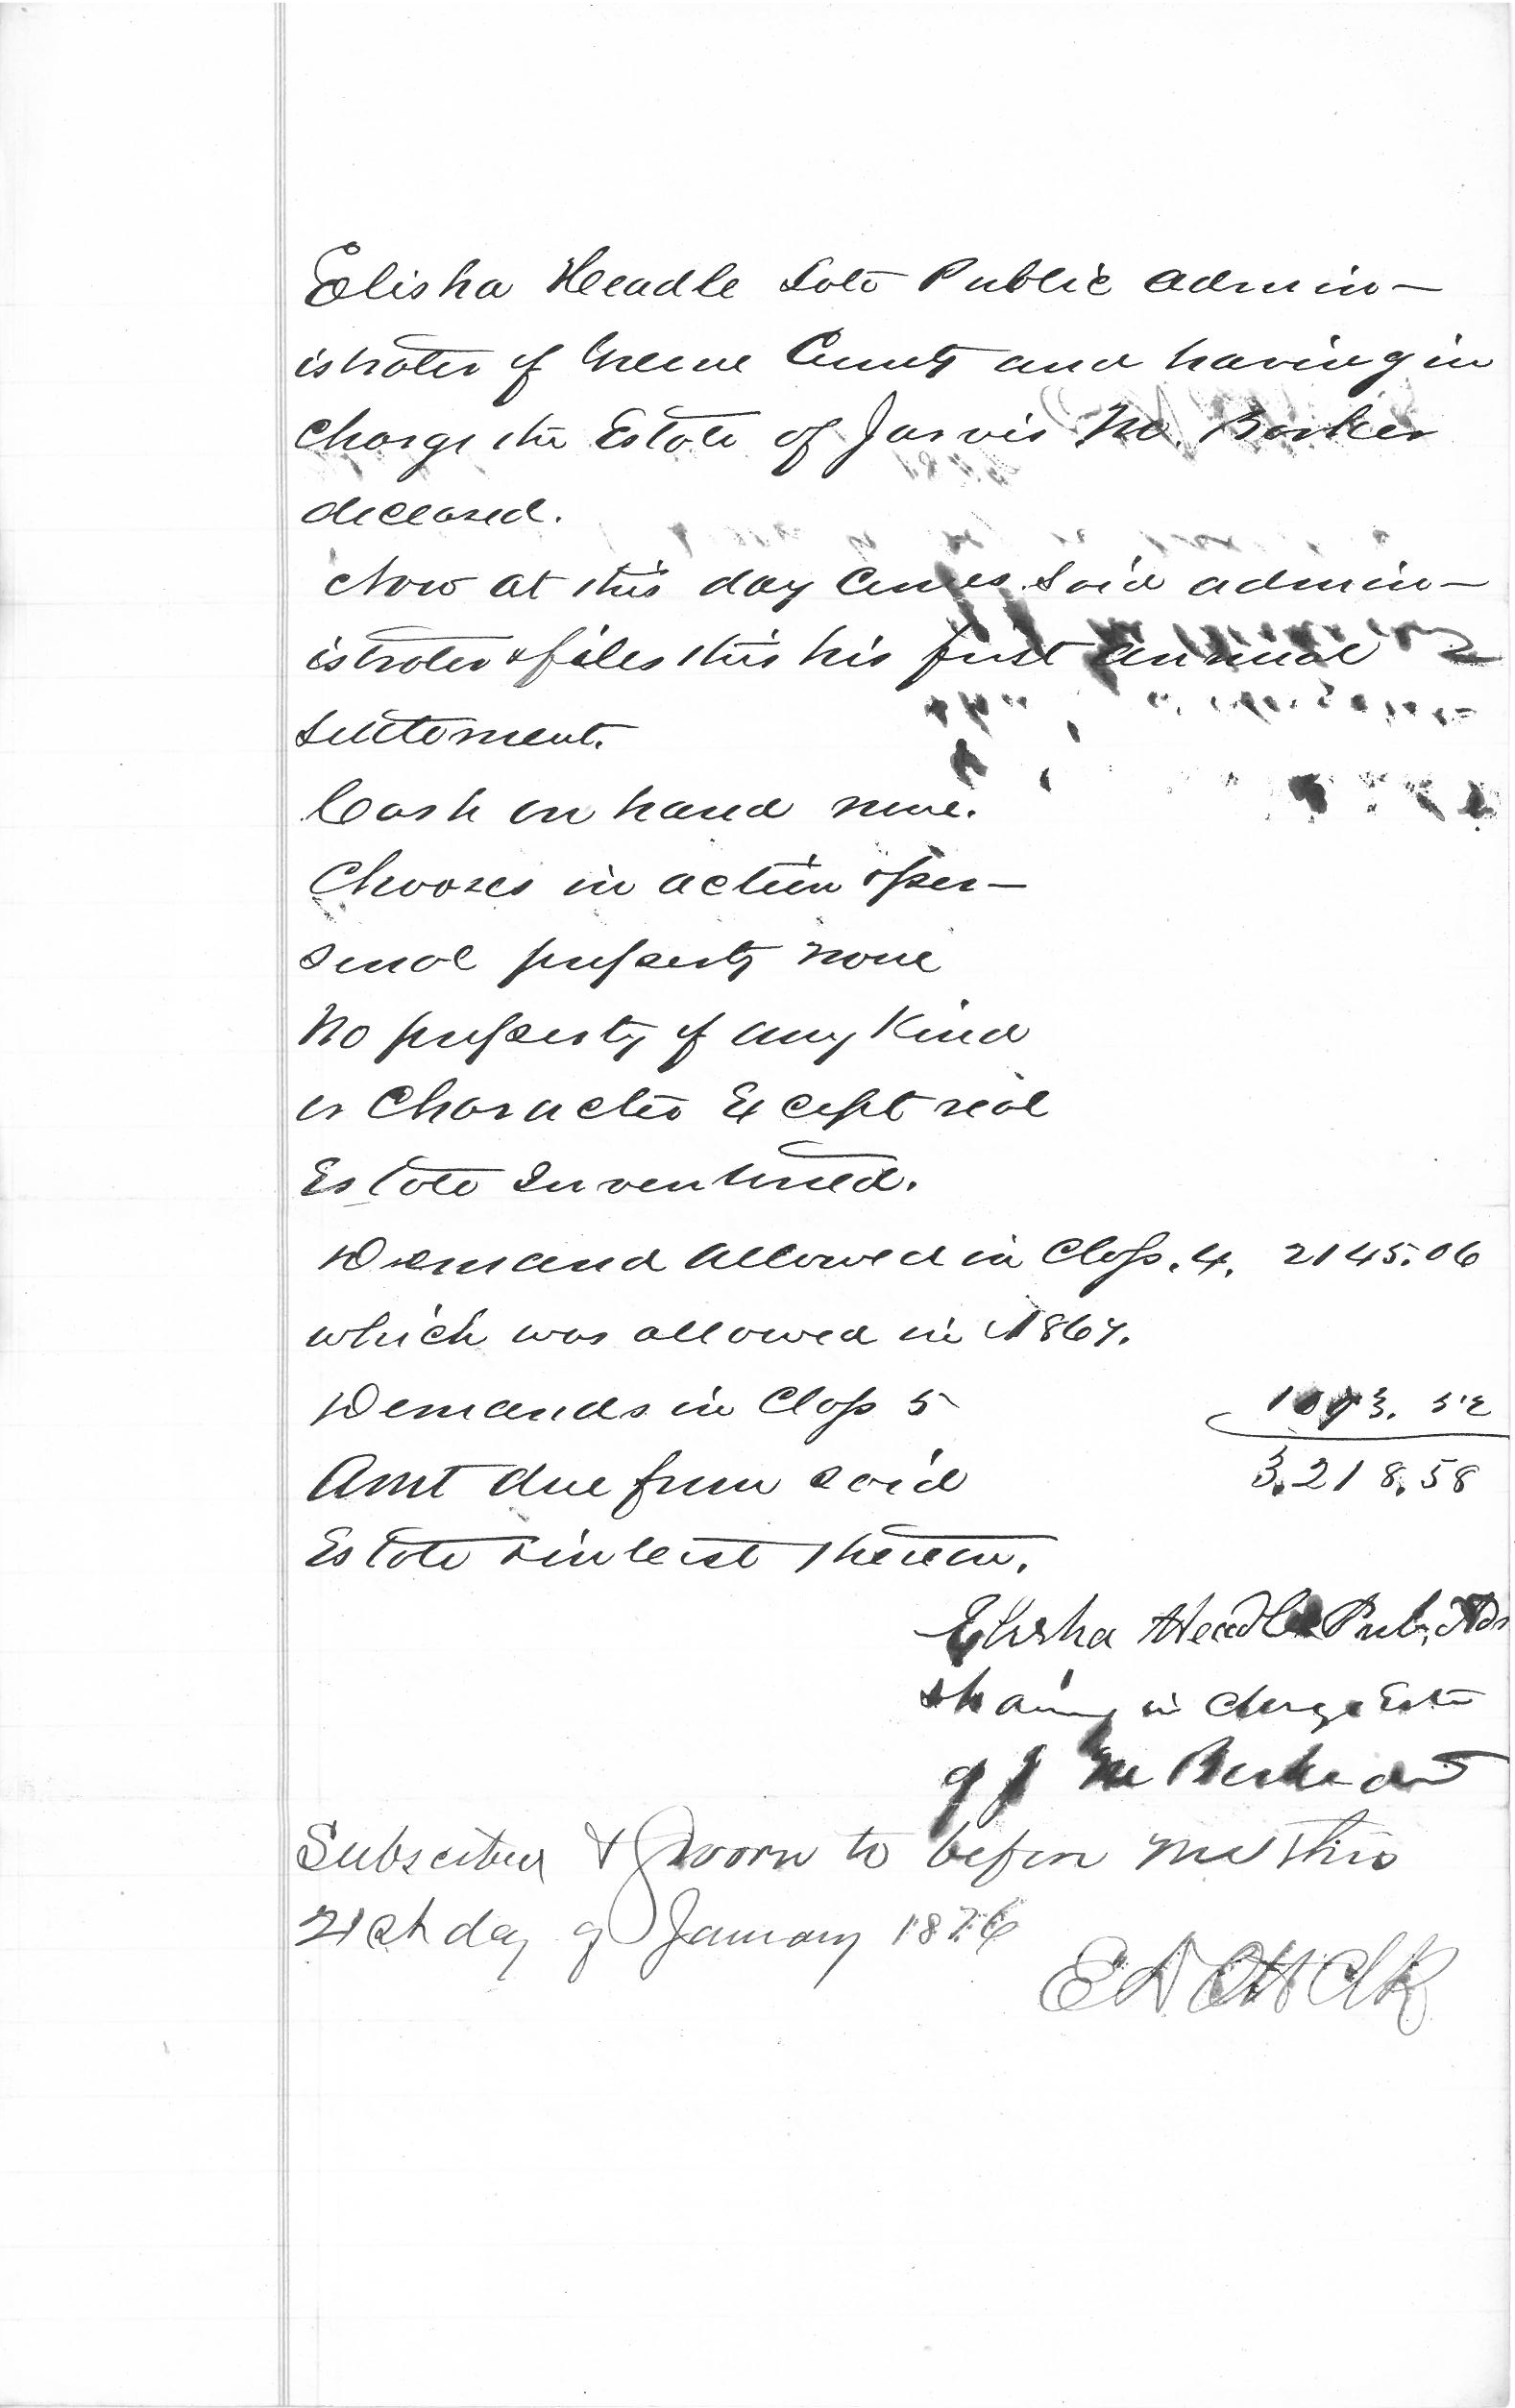 Elisha Headle late Public admin-
istrator of Greene County and having in
charge the Estate of Jarvis M. Barker
deceased.
Now at this day comes said admin-
istrator & files this his first annual
settlement.
Cash on hand none.
Chooses in action & per-
sonal property none
No property of any kind
or character Except real
Estate Inventoried.
Demand allowed in Class. 4. 2145.06
which was allowed in 1867.
Demands in Class 5 1073.52
Amt due from said 3,218.58
Estate & interest thereon.
Elisha Headle Pub. Adr
& having in charge Est
of J M Barker decd
Subscribed & Sworn to before me this
21st day of January 1876